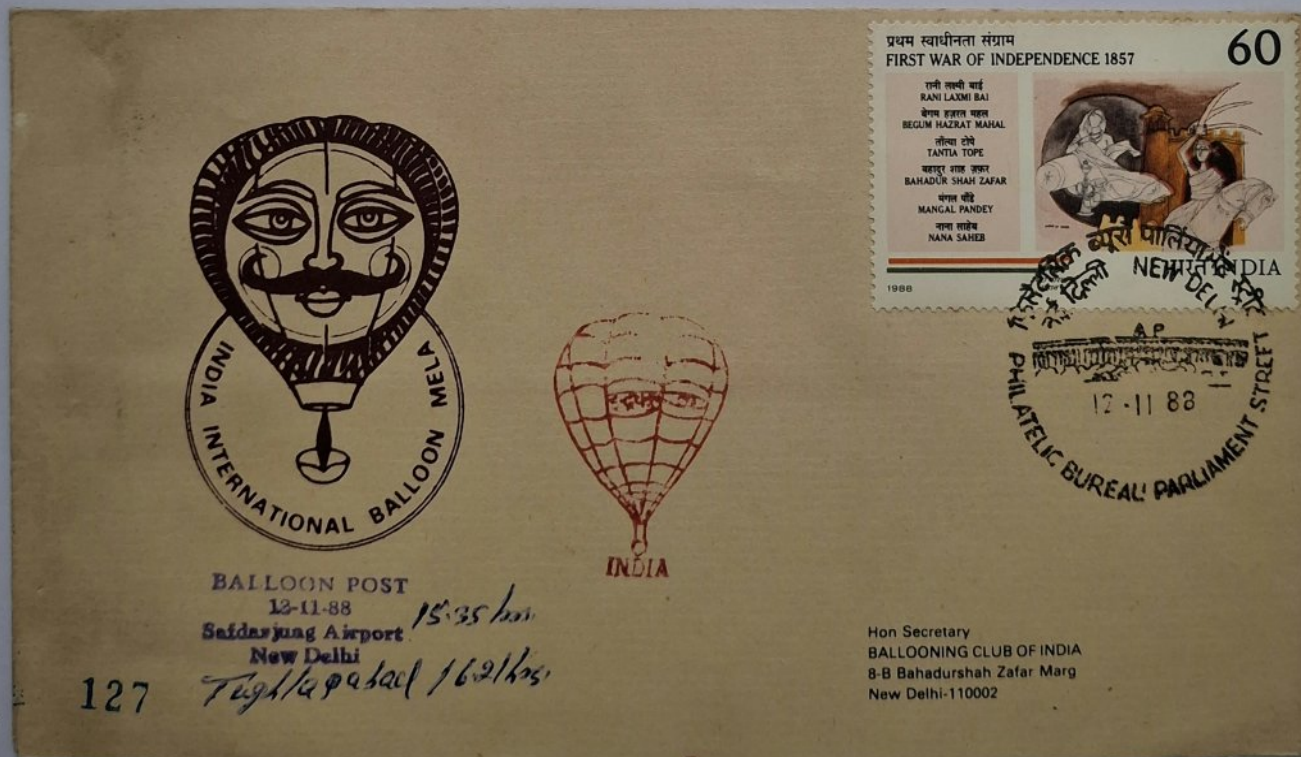 प्रथम स्वाधीनता संग्राम
FIRST WAR OF INDEPENDENCE 1857
60
रानी लक्ष्मी बाई
RANI LAXMI BAI
बेगम हज़रत महल
BEGUM HAZRAT MAHAL
ताँत्या टोपे
TANTIA TOPE
बहादुर शाह ज़फ़र
BAHADUR SHAH ZAFAR
मंगल पाँडे
MANGAL PANDEY
नाना साहेब
NANA SAHEB
भारत INDIA
1988
नई दिल्ली NEW DELHI
A P
12-11 88
PHILATELIC BUREAU PARLIAMENT STREET
INDIA INTERNATIONAL BALLOON MELA
INDIA
BALLOON POST
12-11-88
Safdarjung Airport 15.35 hrs.
New Delhi
Tughlaqabad 1621 hrs.
127
Hon Secretary
BALLOONING CLUB OF INDIA
8-B Bahadurshah Zafar Marg
New Delhi-110002